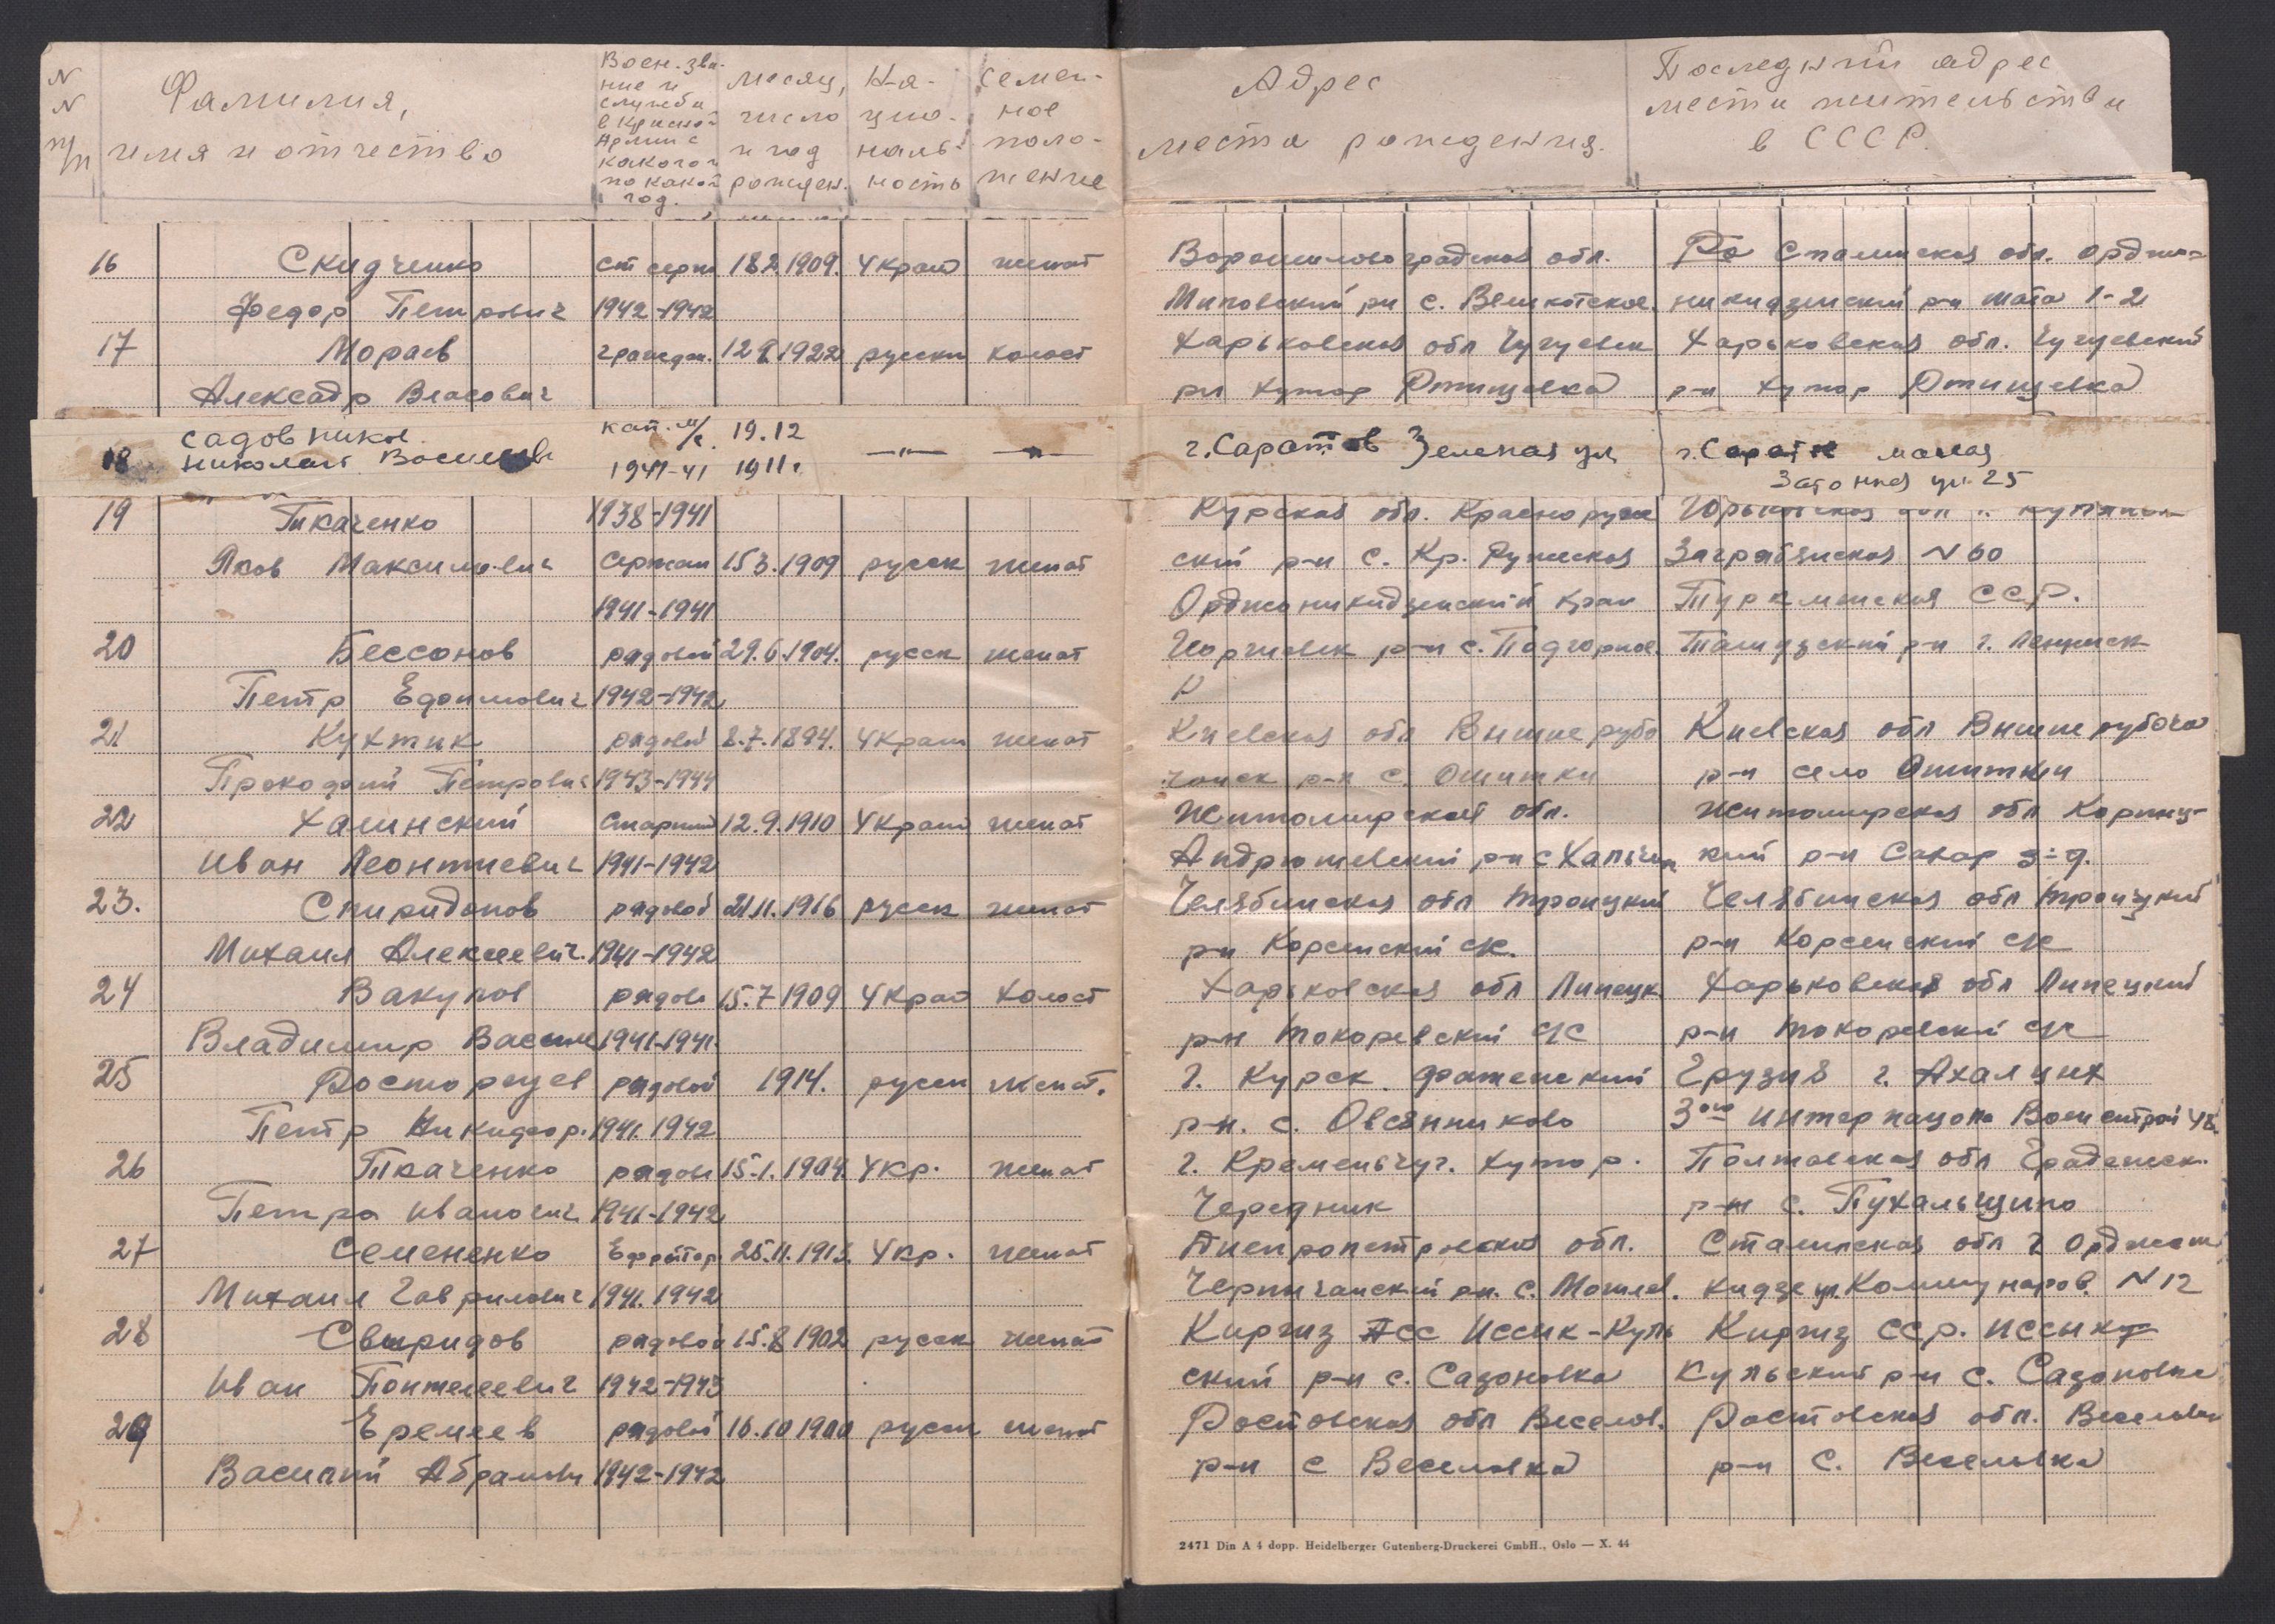 N
N
п/п
Фамилия,
имя и отчество
Воен. зва-
ние и
служба
в Красной
Армии с
какого и
по какой
год.
месяц,
число
и год
рожден.
На-
цио-
наль-
ность
Семей-
ное
поло-
жение
Адрес
места рождения.
Последний адрес
места жительства
в СССР.
16 Скидченко ст серж 18.2.1909. Украи женат Ворошиловоградская обл. Сталинская обл. Орджо-
Федор Петрович 1942-1942 рн с. никидзенский р-н 1-2
17 Мораев граждан. 1922 русски холост Харьковская обл Чугуевск Харьковская обл. Чугуевский
Алексадр Власович рн хутор р-н хутор
18 садовников кап. м/с. 19.12 —"— —"— г. Саратов Зеленая ул г. Саратов малая
николай 1941-41 1911г. Затонная ул. 25
19 Ткаченко 1938-1941 Курская обл. Краснояруж
Яков Максимович Сержан 15 3.1909 русск женат ский р-н с. Кр. N 60
1941-1941 Орджоникидзенский край Туркменская ССР.
20 Бессонов рядовой 29.6.1904. русск женат р-н с. Подгорное. р-н г. Ленинск
Петр Ефимович 1942-1942
21 Кухтик рядовой 8.7.1894. Украин женат Киевская обл Киевская обл
Прокофий Петрович 1943-1944 р-н с. Ошитки р-н село Ошитки
22 Халинский Старший 12.9.1910 Украин женат Житомирской обл. Житомирская обл
Иван Леонтиевич 1941-1942 Андрюшевский р-н с р-н Сахар з-д.
23. Спиридонов рядовой 21.11.1916 русск женат Челябинская обл Троицкий Челябинская обл Троицкий
Михаил Алексеевич. 1941-1942 р-н с/с. р-н с/с
24 Вакулов рядово 15.7 1909 Украи холост Харьковская обл Липецк Харьковская обл Липецкий
Владимир Васил 1941-1941. р-н Токаревский с/с р-н Токаревский с/с
25 Расторгуев рядовой 1914. русск женат. г. Курск. Фатежский Грузия г. Ахалцих
Петр Никифор. 1941. 1942 р-н. с. Овсянниково 3его Интернацона
26 Ткаченко рядово 15.1.1904. Укр. женат г. Кременьчуг. хутор. Полтавская обл Градежск.
Петро Иванович 1941-1942 Чередник р-н с.
27 Семененко Ефрейтор. Укр. женат Днепропетровская обл. Сталинская обл г Орджони
Михаил Гаврилович 1941. 1942 рн. с. кидзе ул. Коммунаров. N 12
28 Свиридов рядовой 15.8 1902 русск женат Киргиз АСС Иссик-Куль Киргиз ССР. Иссик-
Иван Понтелеевич 1942-1943 ский р-н с. Сазоновка Кульский р-н с. Сазоновка
29 Еремеев рядовой 16.10 1900 русск женат Ростовская обл Веселов. Ростовская обл. Веселовск
Василий Абрамови 1942-1942 р-н с Веселовка р-н с. Веселовка
2471 Din A 4 dopp. Heidelberger Gutenberg-Druckerei GmbH., Oslo — X. 44